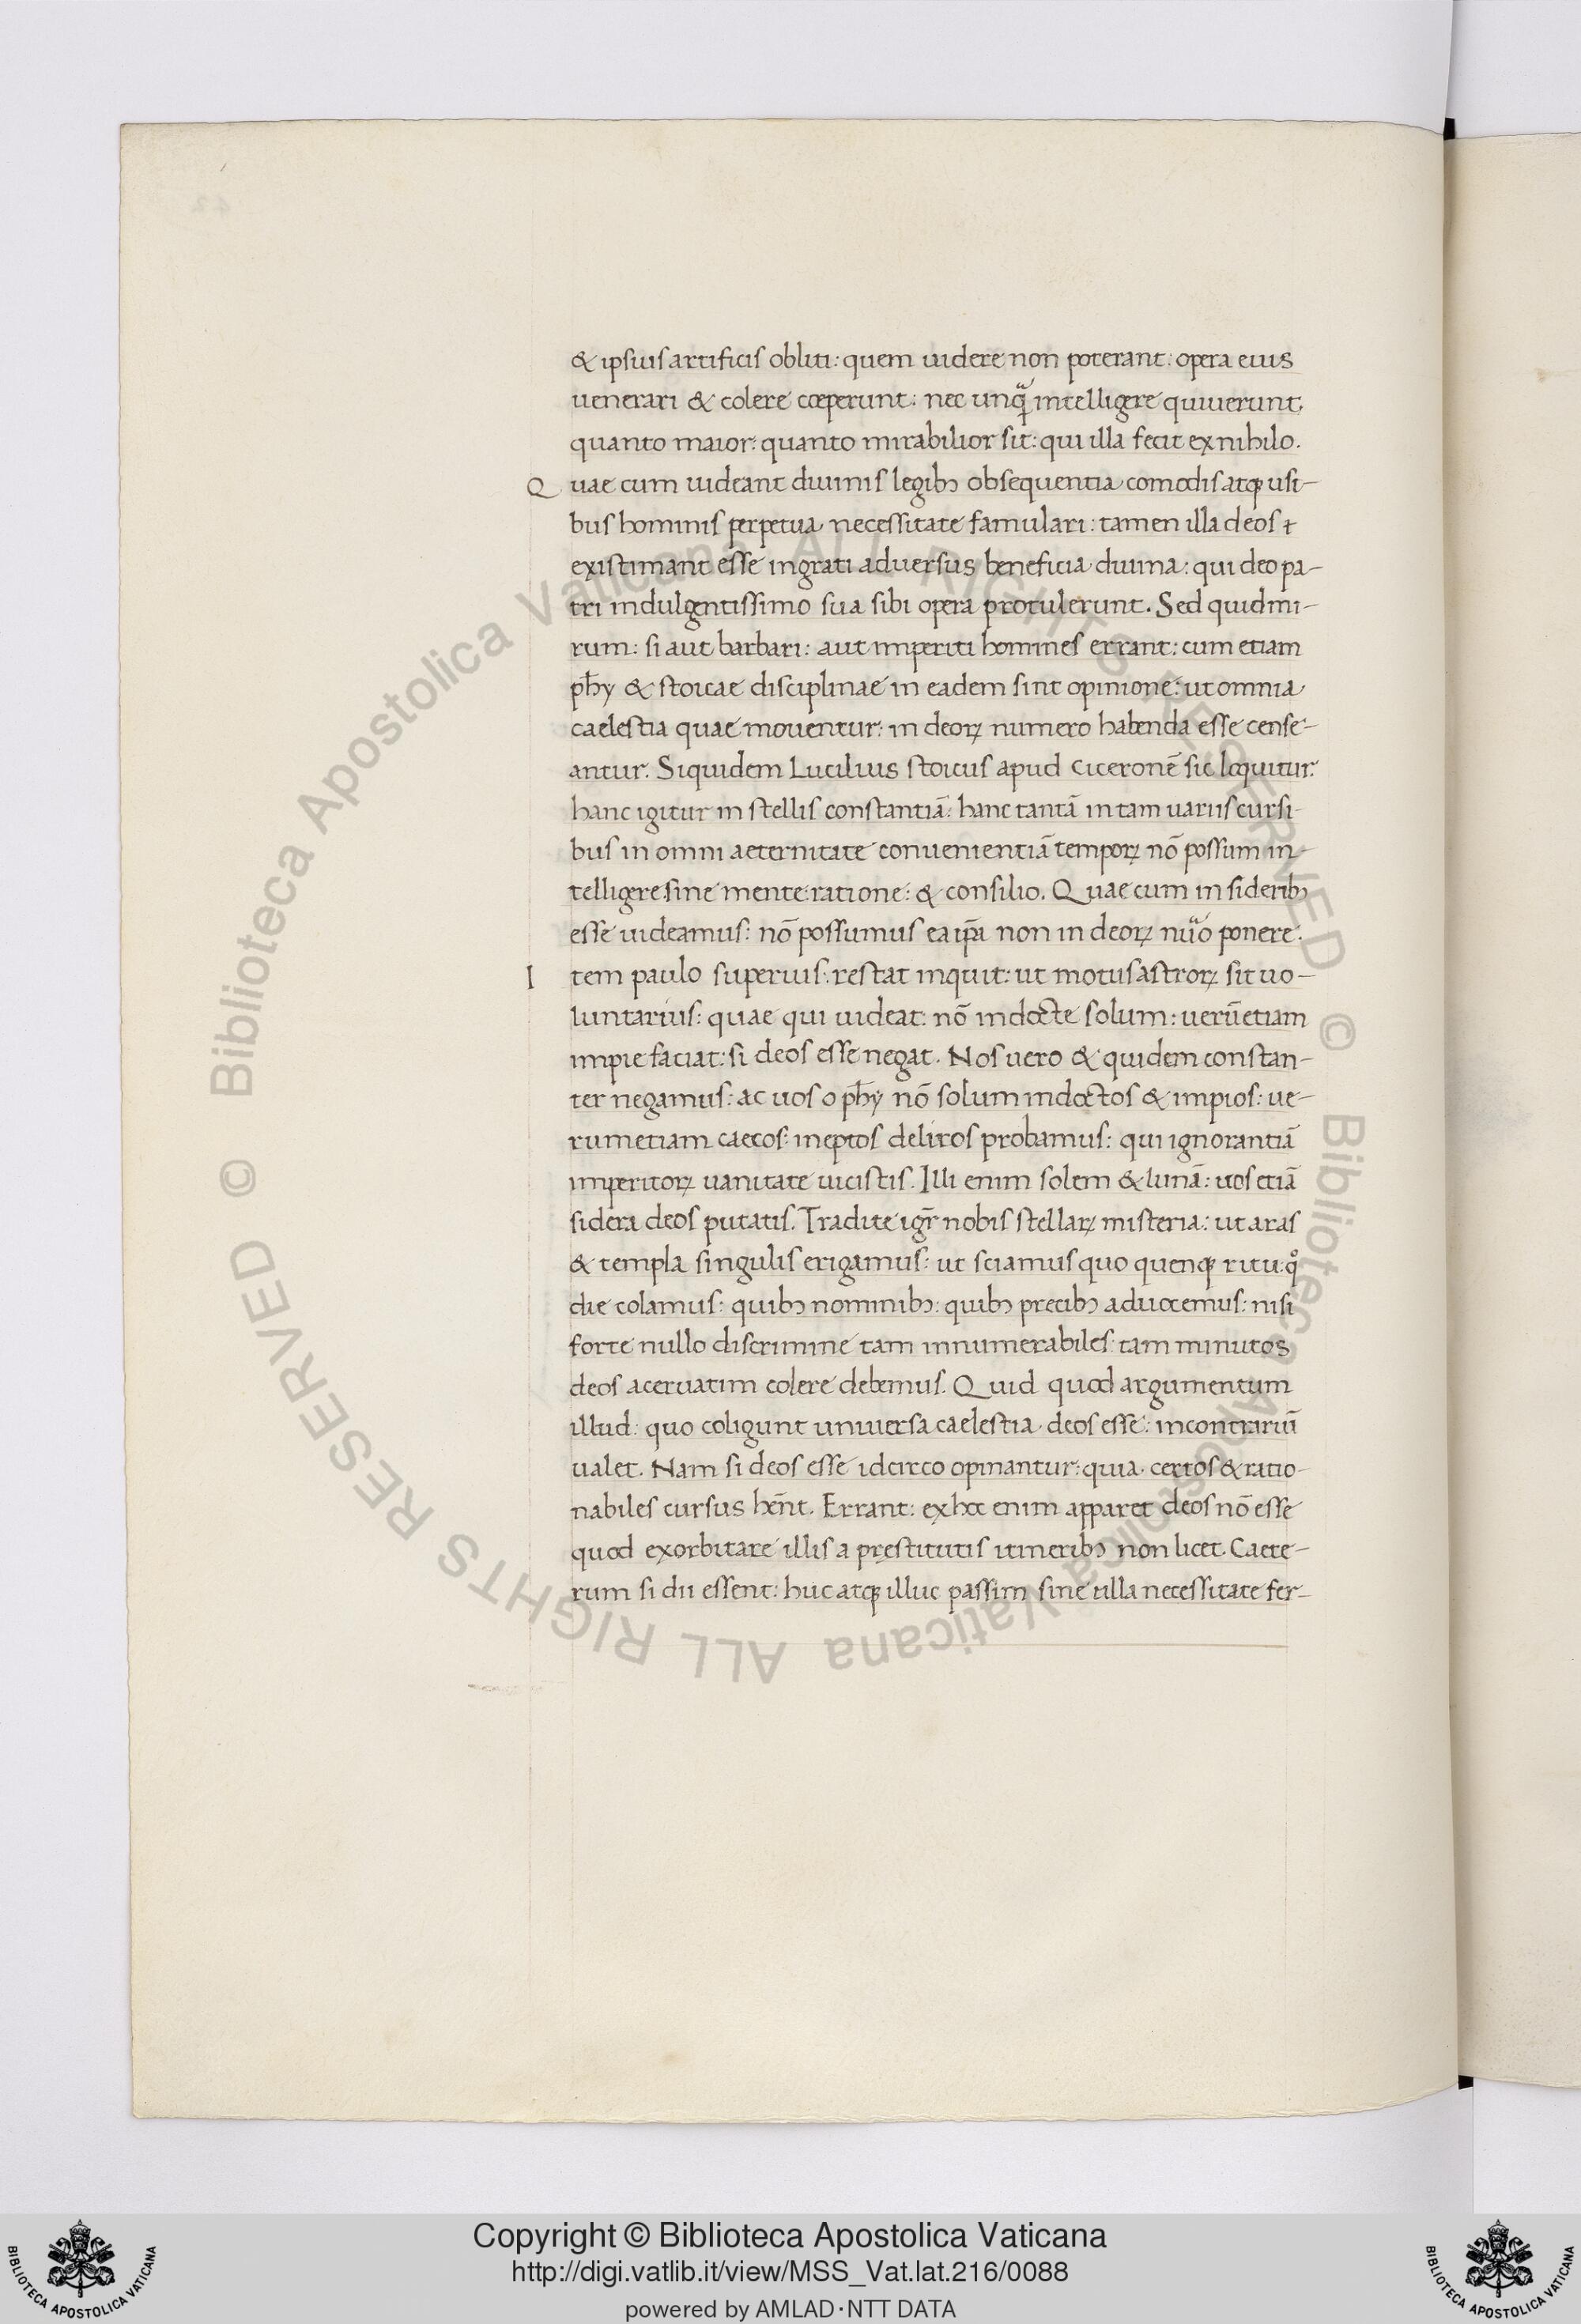 & ipsius artificis obliti: quem uidere non poterant: opera eius
uenerari & colere cœperunt: nec unqᷓ intelligere quiuerunt,
quanto maior: quanto mirabilior sit: qui illa fecit ex nihilo.
Quae cum uideant diuinis legibꝫ obsequentia comodis atqꝫ usi-
bus hominis perpetua necessitate famulari: tamen illa deos
existimant esse ingrati aduersus beneficia diuina: qui deo pa-
tri indulgentissimo sua sibi opera protulerunt. Sed quid mi-
rum: si aut barbari: aut imperiti homines errant: cum etiam
phy̅ & stoicae disciplinae in eadem sint opinione: ut omnia
caelestia quae mouentur: in deoꝝ numero habenda esse cense-
antur. Siquidem Lucilius stoicus apud Ciceronē sic loquitur:
hanc igitur in stellis constantiā: hanc tantā in tam uariis cursi-
bus in omni aeternitate conuenientiā tempoꝝ nō possum in-
telligere sine mente ratione: & consilio. Quae cum in sideribꝫ
esse uideamus: nō possumus ea ip̄a non in deoꝝ nu͛o ponere.
Item paulo superius: restat inquit: ut motus astroꝝ sit uo-
luntarius: quae qui uideat: nō indocte solum: uerū etiam
impie faciat: si deos esse negat. Nos uero & quidem constan-
ter negamus: ac uos o phy̅ nō solum indoctos & impios: ue-
rum etiam caecos: ineptos deliros probamus: qui ignorantiā
imperitoꝝ uanitate uicistis. Illi enim solem & lunā: uos etiā
sidera deos putatis. Tradite igr̄ nobis stellaꝝ misteria: ut aras
& templa singulis erigamus: ut sciamus quo quenqꝫ ritu: qͦ
die colamus: quibꝫ nominibꝫ: quibꝫ precibꝫ aduocemus: nisi
forte nullo discrimine tam innumerabiles tam minutos
deos aceruatim colere debemus. Quid quod argumentum
illud: quo coligunt uniuersa caelestia deos esse: in contrariū
ualet. Nam si deos esse idcirco opinantur: quia certos & ratio-
nabiles cursus hn̄t. Errant: ex hoc enim apparet deos nō esse
quod exorbitare illis a prestitutis itineribꝫ non licet. Caete-
rum si dii essent: huc atqꝫ illuc passim sine ulla necessitate fer-
© Biblioteca Apostolica Vaticana ALL RIGHTS RESERVED
© Biblioteca Apostolica Vaticana ALL RIGHTS RESERVED
Copyright © Biblioteca Apostolica Vaticana
http://digi.vatlib.it/view/MSS_Vat.lat.216/0088
powered by AMLAD·NTT DATA
BIBLIOTECA APOSTOLICA VATICANA
BIBLIOTECA APOSTOLICA VATICANA